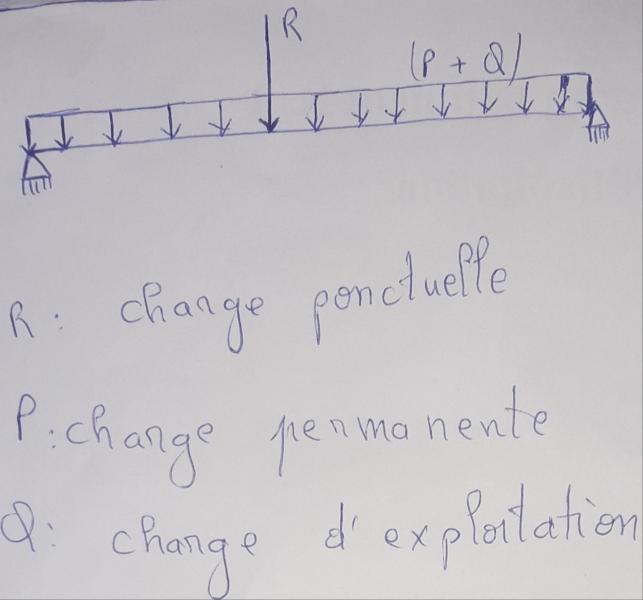 R
(P + Q)
R: charge ponctuelle
P: charge permanente
Q: charge d'exploitation